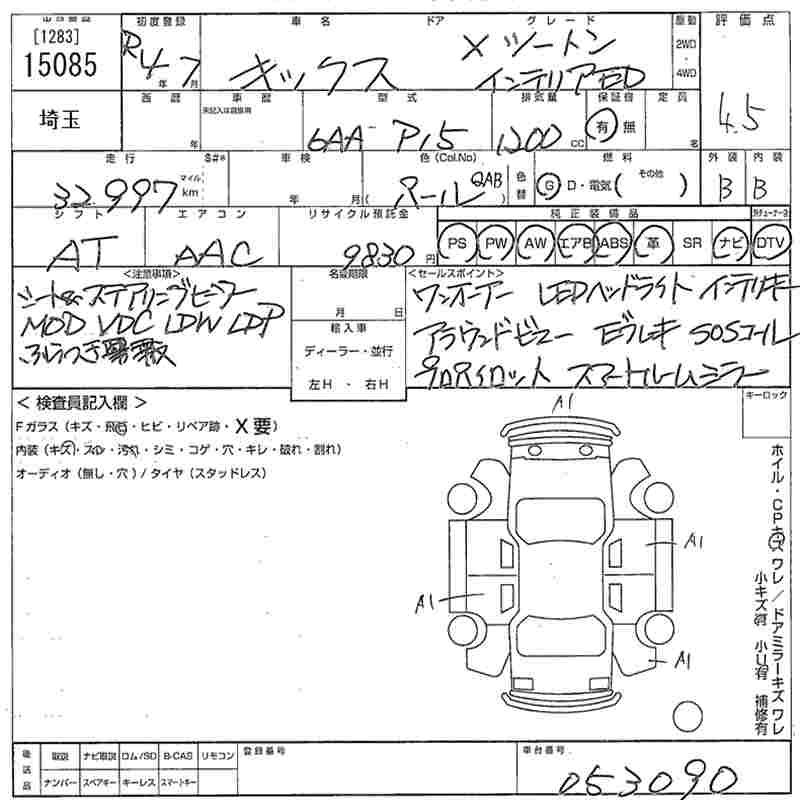 [1283]
15085
初度登録 車名 ドア グレード 駆動 評価点
R4年7月 キックス Xツートン
インテリアED
2WD
4WD
4.5
埼玉
西暦 車歴 型式 排気量 保証書 定員
未記入は自家用
年 6AA P15 1200cc 有 無 名
走行 S#* 車検 色(Col.No) 燃料 外装 内装
32997 マイル km 年 月( パール QAB ) 色替 G D・電気( その他 ) B B
シフト エアコン リサイクル預託金 純正装備品
AT AAC 9830円 PS PW AW エアB ABS 革 SR ナビ DTV
<注意事項> 名変期限 <セールスポイント>
シート& ステアリングヒーター
MOD VDC LDW LDP
ふらつき警報
月 日
輸入車
ディーラー・並行
左H ・ 右H
ワンオーナー LEDヘッドライト インテリキー
アラウンドビュー エブレキ SOSコール
プロパイロット スマートルームミラー
< 検査員記入欄 >
Fガラス(キズ・飛石・ヒビ・リペア跡・X要)
内装(キズ・スレ・汚れ・シミ・コゲ・穴・キレ・破れ・割れ)
オーディオ(無し・穴)/タイヤ(スタッドレス)
キーロック
A1
A1
A1
A1
ホイル・CPキズ ワレ/ドアミラーキズ ワレ
小キズ有 小U有 補修有
後送品 取説 ナビ取説 ロム/SD B-CAS リモコン
ナンバー スペアキー キーレス スマートキー
登録番号 車台番号
053090